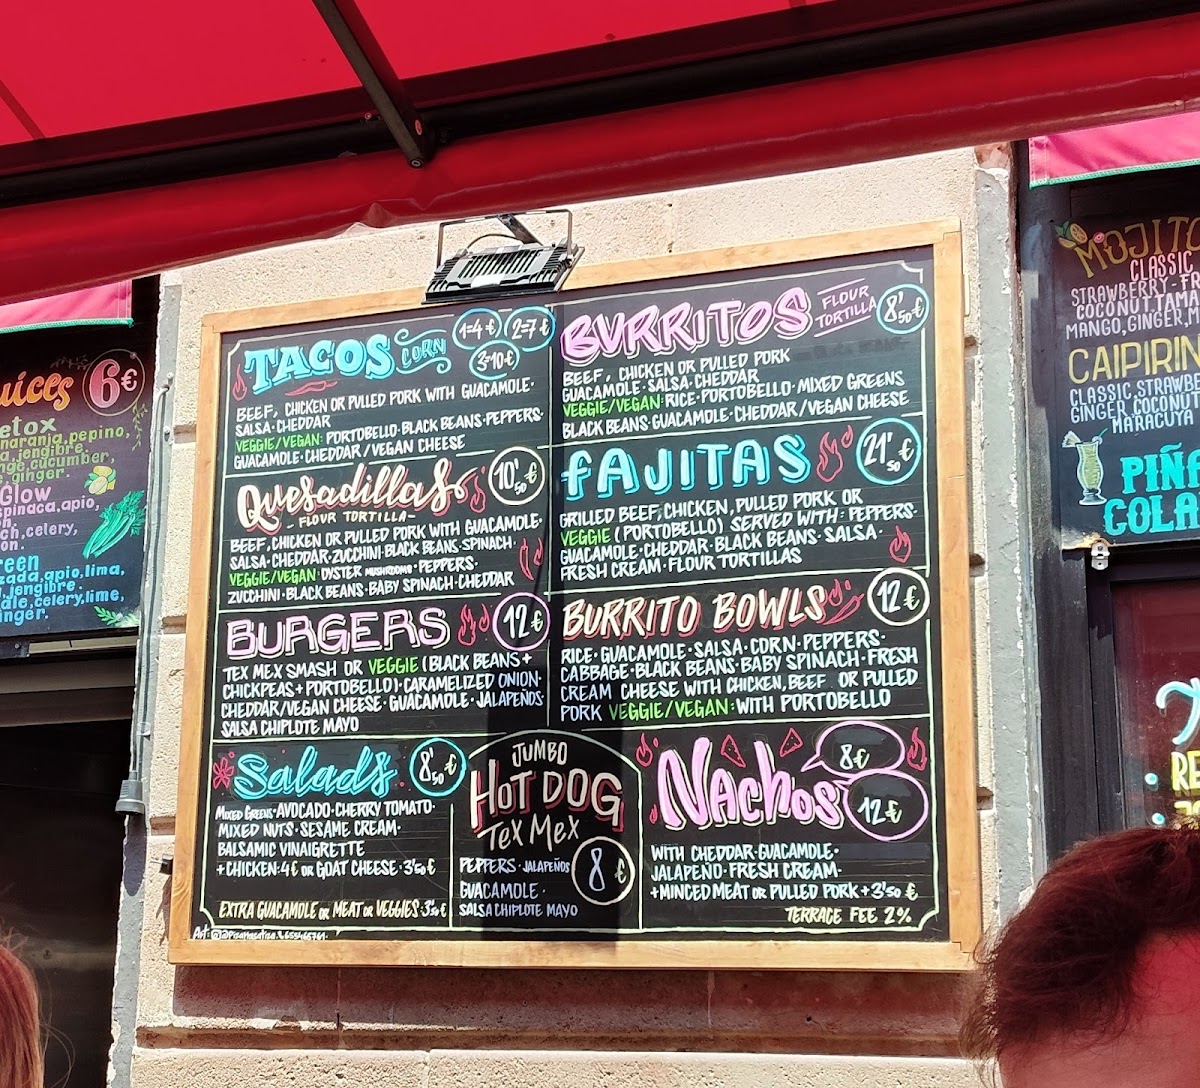 uices 6€
etox
naranja, pepino,
a, jengibre.
nge, cucumber,
e, ginger.
Glow
spinaca, apio,
ch, celery,
on.
reen
zada, apio, lima,
, jengibre.
ale, celery, lime,
inger.
TACOS CORN 1=4€ 2=7€
3=10€
BEEF, CHICKEN OR PULLED PORK WITH GUACAMOLE·
SALSA·CHEDDAR
VEGGIE/VEGAN: PORTOBELLO·BLACK BEANS·PEPPERS·
GUACAMOLE·CHEDDAR/VEGAN CHEESE
Quesadillas 10'50€
- FLOUR TORTILLA -
BEEF, CHICKEN OR PULLED PORK WITH GUACAMOLE·
SALSA·CHEDDAR·ZUCCHINI·BLACK BEANS·SPINACH·
VEGGIE/VEGAN·OYSTER MUSHROOMS·PEPPERS·
ZUCCHINI·BLACK BEANS·BABY SPINACH·CHEDDAR
BURGERS 12€
TEX MEX SMASH OR VEGGIE (BLACK BEANS+
CHICKPEAS+PORTOBELLO)·CARAMELIZED ONION·
CHEDDAR/VEGAN CHEESE·GUACAMOLE·JALAPEÑOS·
SALSA CHIPLOTE MAYO
Salads 8'50€
MIXED GREENS·AVOCADO·CHERRY TOMATO·
MIXED NUTS·SESAME CREAM·
BALSAMIC VINAIGRETTE
+CHICKEN:4€ OR GOAT CHEESE·3'50€
EXTRA GUACAMOLE OR MEAT OR VEGGIES·3'50€
JUMBO
HOT DOG
TEX MEX
8€
PEPPERS·JALAPEÑOS
GUACAMOLE·
SALSA CHIPLOTE MAYO
BURRITOS FLOUR TORTILLA 8'50€
BEEF, CHICKEN OR PULLED PORK
GUACAMOLE·SALSA·CHEDDAR
VEGGIE/VEGAN: RICE·PORTOBELLO·MIXED GREENS
BLACK BEANS·GUACAMOLE·CHEDDAR/VEGAN CHEESE
FAJITAS 21'50€
GRILLED BEEF, CHICKEN, PULLED PORK OR
VEGGIE (PORTOBELLO) SERVED WITH: PEPPERS·
GUACAMOLE·CHEDDAR·BLACK BEANS·SALSA·
FRESH CREAM·FLOUR TORTILLAS
BURRITO BOWLS 12€
RICE·GUACAMOLE·SALSA·CORN·PEPPERS·
CABBAGE·BLACK BEANS·BABY SPINACH·FRESH
CREAM CHEESE WITH CHICKEN, BEEF OR PULLED
PORK VEGGIE/VEGAN: WITH PORTOBELLO
NACHOS 8€
12€
WITH CHEDDAR·GUACAMOLE·
JALAPEÑO·FRESH CREAM·
+MINCED MEAT OR PULLED PORK+3'50€
TERRACE FEE 2%
MOJITO
CLASSIC
STRAWBERRY-FR
COCONUT, TAMA
MANGO, GINGER, M
CAIPIRIN
CLASSIC, STRAWBE
GINGER, COCONUT
MARACUYA
PIÑA
COLA
RE